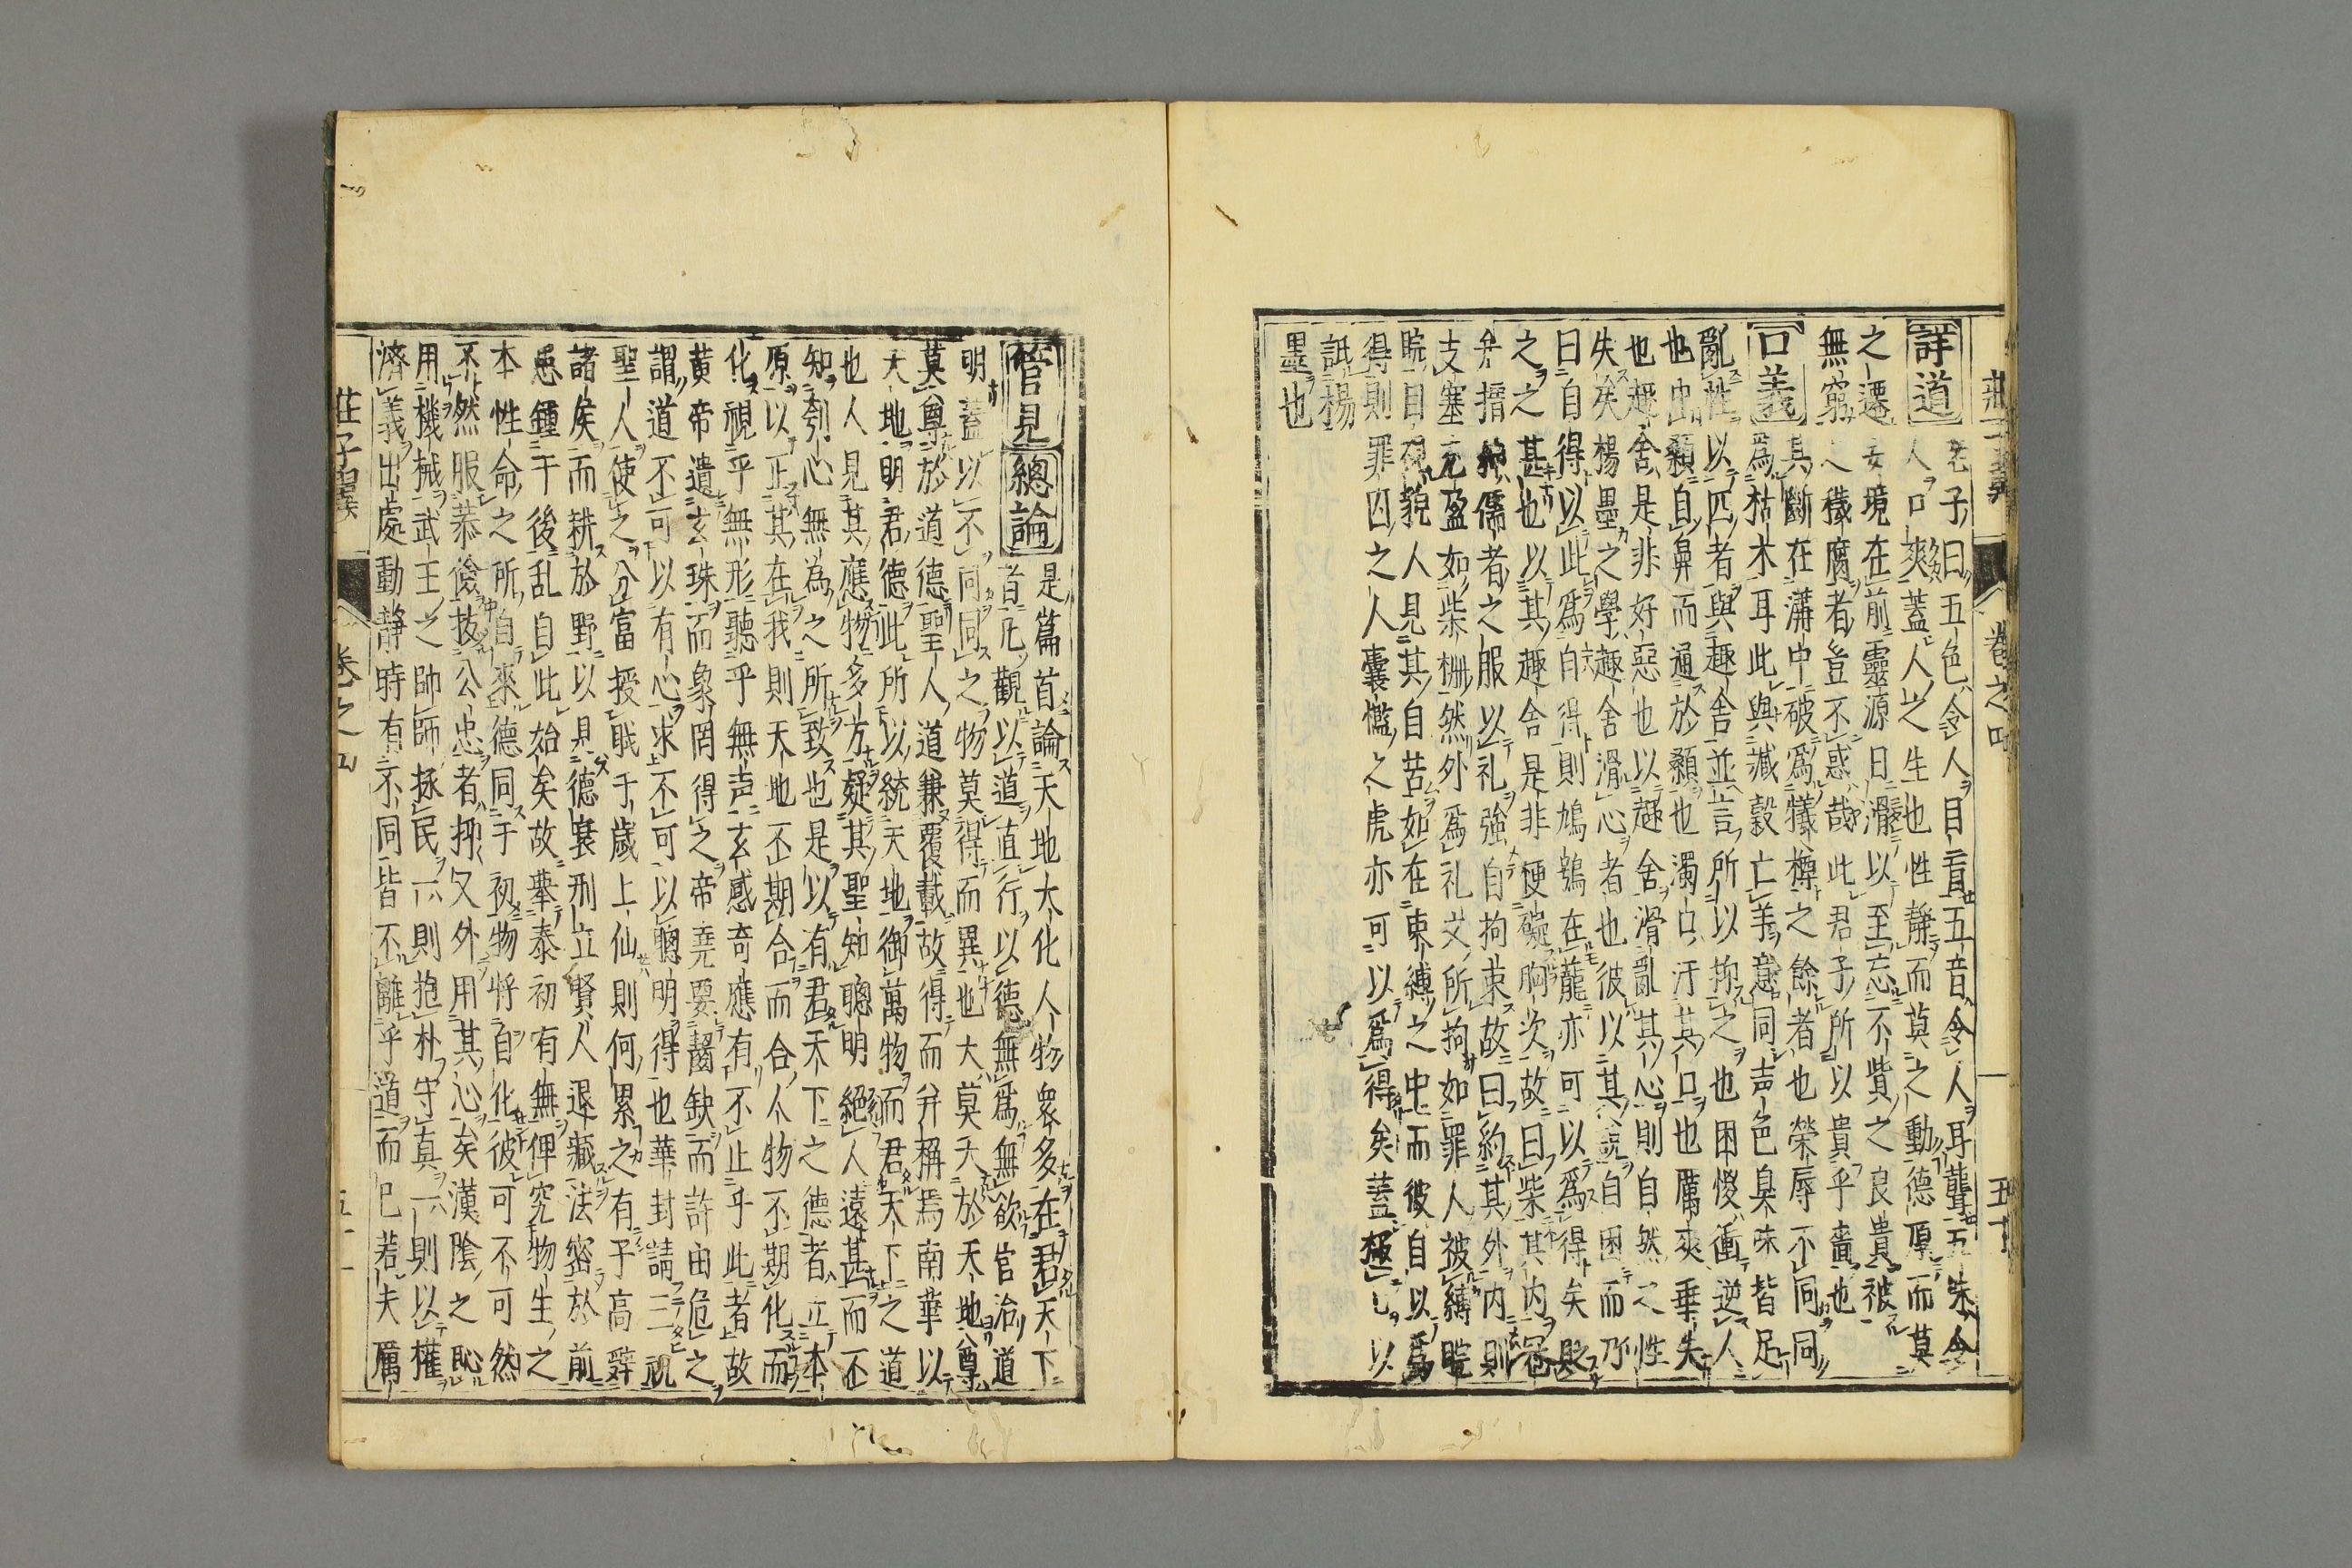 莊子翼 卷之四 五十
詳道 老子曰五色令人目盲五音令人耳聾五味令
人口爽蓋人之生也性靜而莫之動德厚而莫
之遷妄境在前靈源日濁以至忘不貲之良貴被
無窮之穢腐者豈不惑哉此君子所以貴乎嗇也
口義 其斷在溝中破為犧樽之餘者也榮辱不同同
為枯木耳此與臧穀亡羊意同声色臭味皆足
亂性以四者與趣舍並言所以抑之也困惾衝逆人
也中顙自鼻而通於顙也濁口汙其口也厲爽乖失
也趣舍是非好惡也以趣舍滑亂其心則自然之性
失矣楊墨之學趣舍滑心者也彼以其說自困而乃
曰自得以此為自得則鳩鴞在蘢亦可以為得矣貶
之之甚也以其趣舍是非梗礙胸次故曰柴其内冠
弁搢紳儒者之服以礼強自拘束故曰約其外内則
支塞充盈如柴柵然外為礼文所拘如罪人被縛睆
睆目視貌人見其自苦如在束縛之中而彼自以為
得則罪囚之人囊檻之虎亦可以為得矣蓋極口以
詆楊
墨也
管見總論 是篇首論天地大化人物衆多在君天下
首元觀以道直行以德無為無欲官治道
明蓋以不同同之物莫得而異也大莫大於天地尊
莫尊於道德聖人道兼覆載故得而并稱焉南華以
天地明君德此所以統天地御萬物而君天下之道
也人見其應物多方疑其聖知聰明絕人遠甚而不
知刳心無為之所致也是以有君天下之德者立本
原以正其在我則天地不期合而合人物不期化而
化視乎無形聽乎無声玄感奇應有不止乎此者故
黄帝遺玄珠而象罔得之帝堯要齧缺而許由危之
謂道不可以有心求不可以聰明得也華封請三祝
聖人使之分富授職千歲上仙則何累之有子高辭
諸侯而耕於野以見德衰刑立賢人退藏法密於前
患鍾于後乱自此始矣故舉泰初有無俾究物生之
本性命之所自來德同于初物將自化彼可不可然
不然服恭儉拔公忠者抑又外用其心矣漢陰之恥
用機械武王之帥師拯民一則抱朴守真一則以權
濟義出處動靜時有不同皆不離乎道而已若夫厲
莊子翼 卷之四 五十一